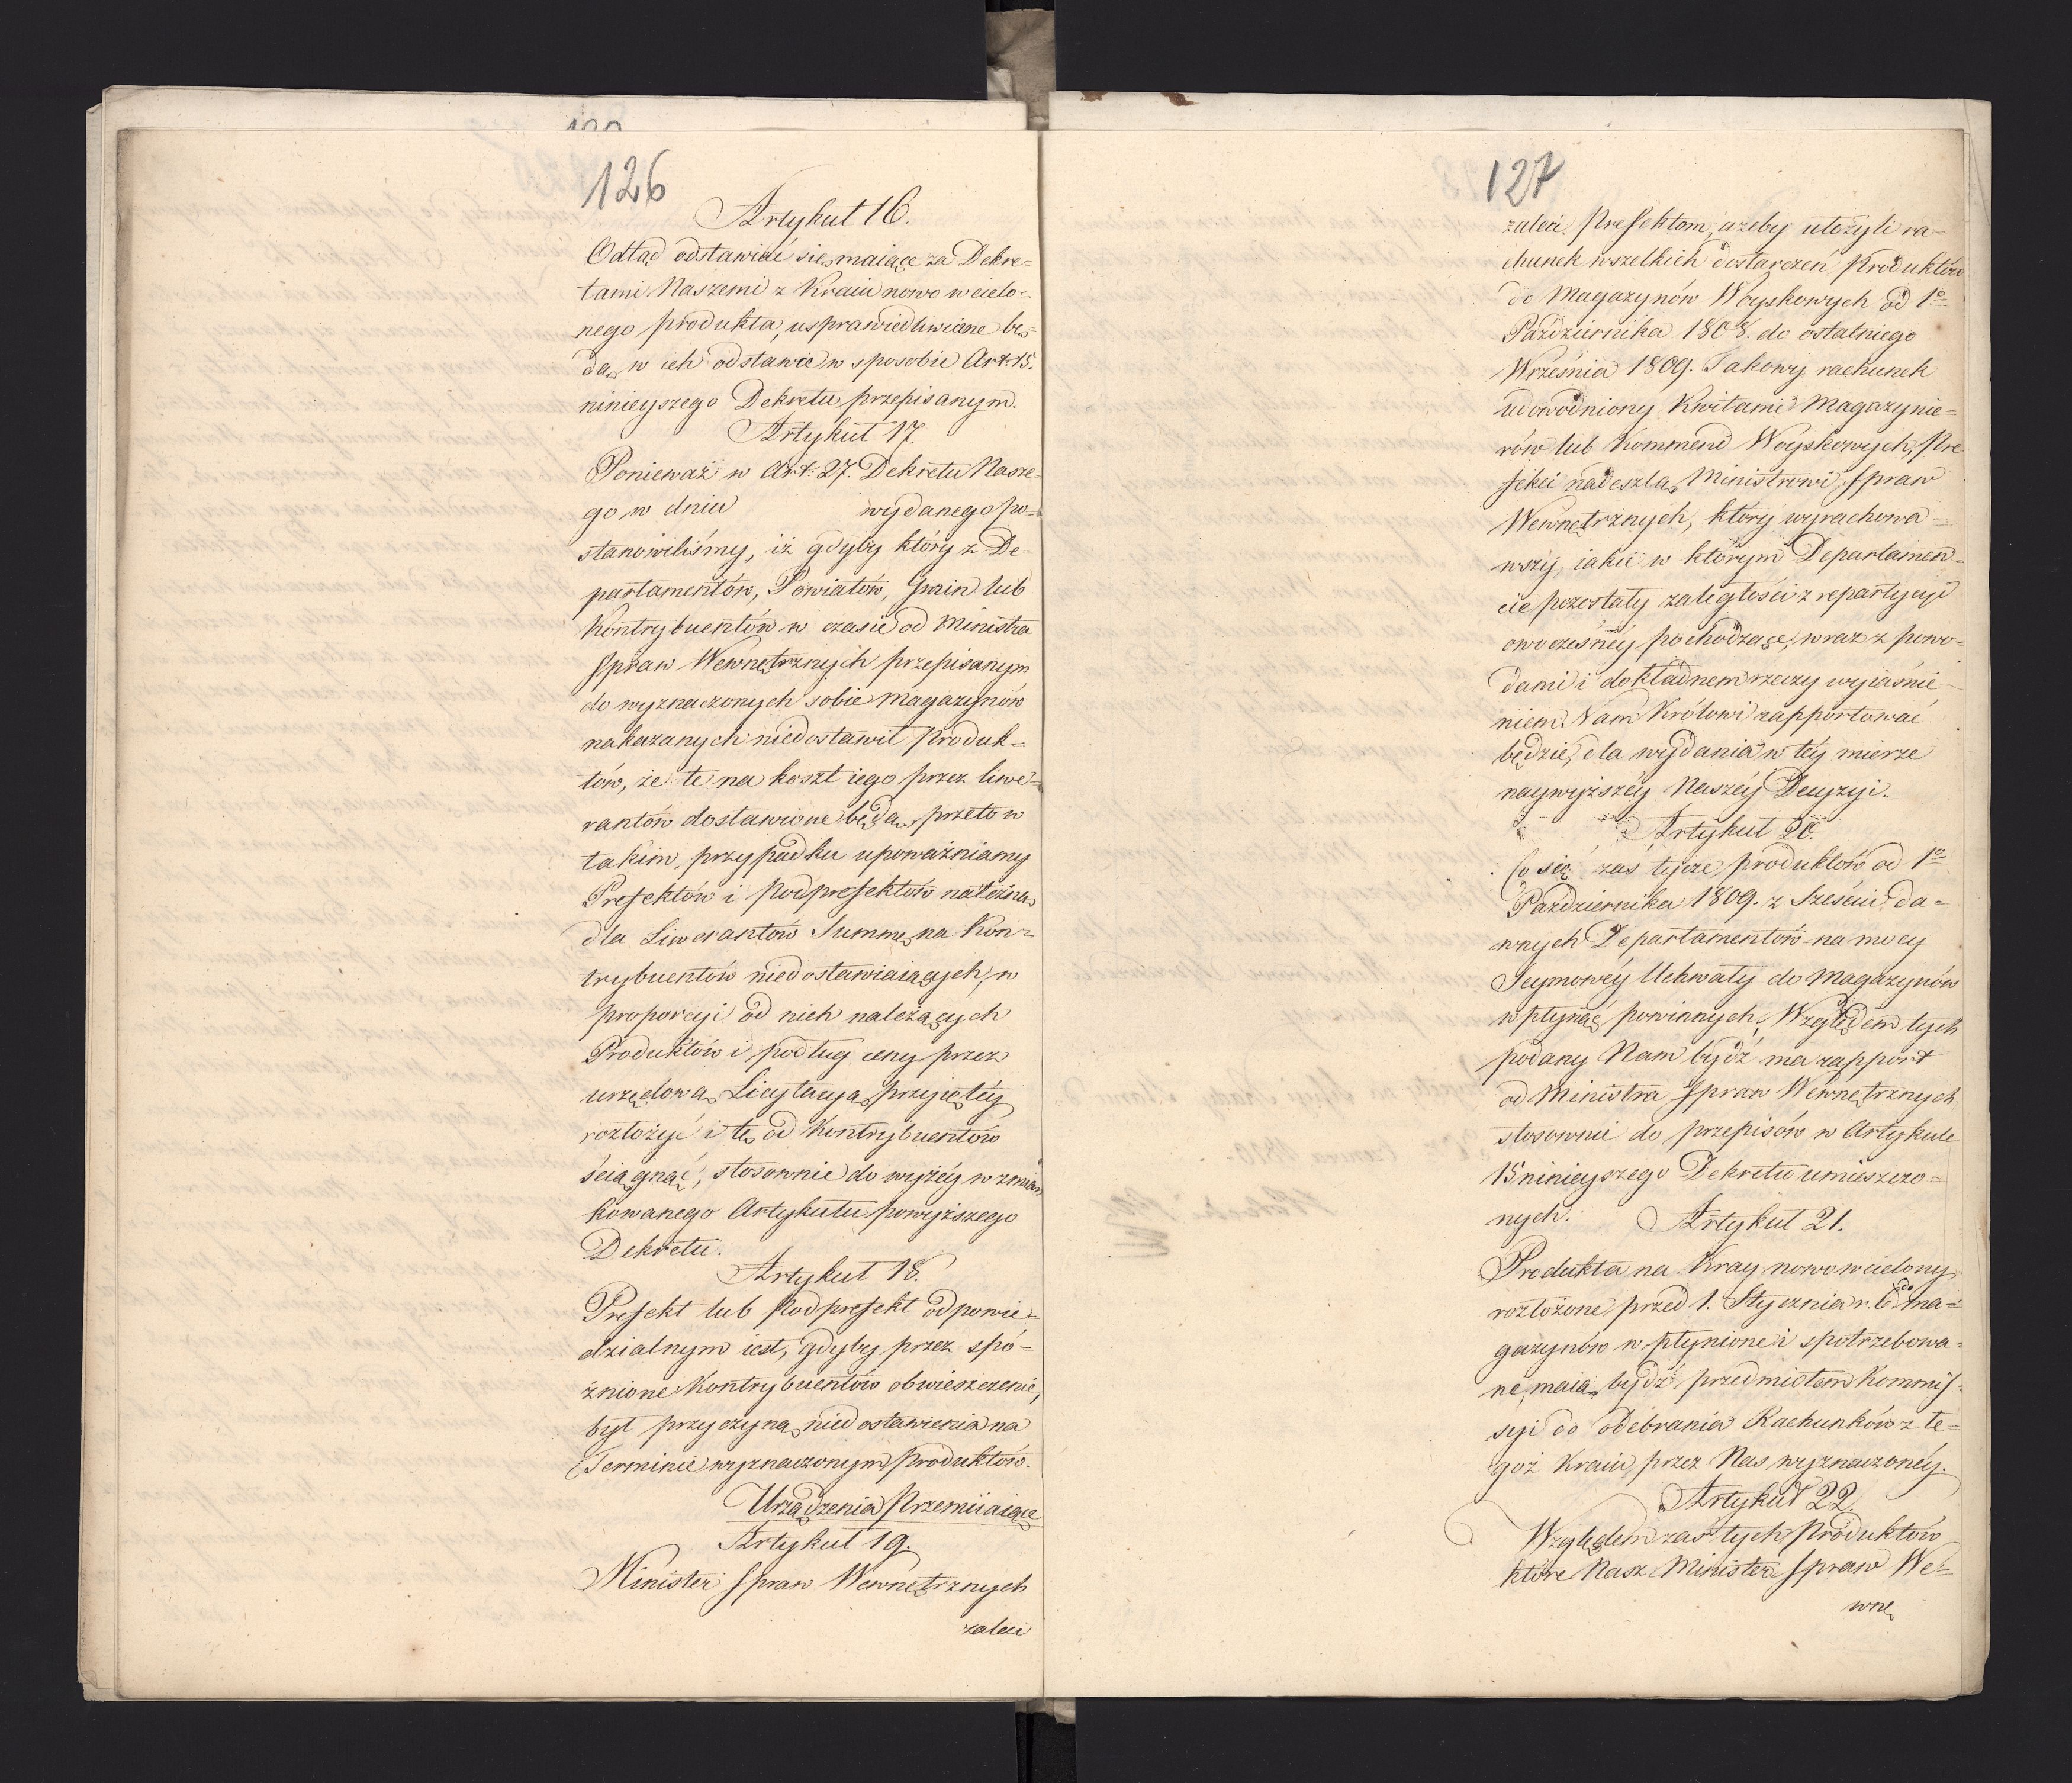 126
Artykuł 16.
Odtąd odstawiać się maiące za Dekre=
tami Naszemi z Kraiu nowo wcielo=
nego produkta, usprawiedliwione bę=
dą w ich odstawie w sposobie Art: 15.
ninieyszego Dekretu przepisanym.
Artykuł 17.
Ponieważ w Art: 27. Dekretu Nasze=
go w dniu wydanego po=
stanowiliśmy, iż gdyby który z De=
partamentów, Powiatów, Gmin lub
Kontrybuentów w czasie od Ministra
Spraw Wewnętrznych przepisanym
do wyznaczonych sobie Magazynów
nakazanych niedostawił Produk=
tów, że te na koszt iego przez liwe=
rantów dostawione będą, przeto w
takim przypadku upoważniamy
Prefektów i Podprefektów należną
dla Liwerantów Summę na Kon=
trybuentów niedostawiaiących, w
proporcyi od nich należących
Produktów i podług ceny przez
urzędową Licytacyą przyiętéy
rozłożyć i tę od Kontrybuentów
ściągnąć, stosownie do wyżéy wzmian
kowanego Artykułu powyższego
Dekretu.
Artykuł 18.
Prefekt lub Podprefekt odpowie=
dzialnym iest, gdyby przez spó=
źnione Kontrybuentów obwieszczenie,
był przyczyną niedostawienia na
Terminie wyznaczonym Produktów.
Urządzenia Przemiiaiące
Artykuł 19.
Minister Spraw Wewnętrznych
zaleci
127
zaleci Prefektom, ażeby ułożyli ra=
chunek wszelkich dostarczeń Produktów
do Magazynów Woyskowych od 1o
Października 1808. do ostatniego
Września 1809. Takowy rachunek
udowodniony Kwitami Magazynie=
rów lub Kommend Woyskowych, Pre
fekci nadeszlą Ministrowi Spraw
Wewnętrznych, który wyrachowa=
wszy, iakie w którym Departamen=
cie pozostały zaległości z repartycyi
owoczesnéy pochodzące, wraz z powo=
dami i dokładnem rzeczy wyiaśnie=
niem Nam Królowi rapportować
będzie, dla wydania w téy mierze
naywyższéy Naszéy Decyzyi.
Artykuł 20.
Co się zaś tycze produktów od 1o
Października 1809. z Sześciu da=
wnych Departamentów na mocy
Seymowéy Uchwały do Magazynów
wpłynąć powinnych, Względem tych
podany Nam bydź ma rapport
od Ministra Spraw Wewnętrznych
stosownie do przepisów w Artykule
15 ninieyszego Dekretu umieszczo=
nych.
Artykuł 21.
Produkta na Kray nowo wcielony
rozłożone przed 1. Stycznia r. b. do ma=
gazynów wpłynione i spotrzebowa=
ne, maią bydź przedmiotem Kommis=
syi do odebrania Rachunków z te=
goż Kraiu przez Nas wyznaczonéy.
Artykuł 22.
Względem zaś tych Produktów
które Nasz Minister Spraw We=
wnę